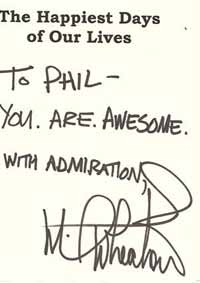 The Happiest Days
of Our Lives
TO PHIL-
YOU. ARE. AWESOME.
WITH ADMIRATION,
W. Wheaton